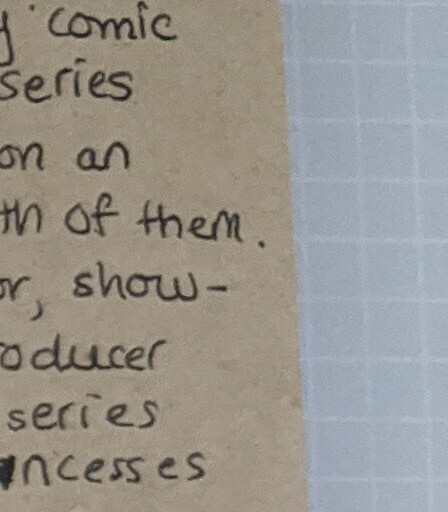 y comic
series
on an
th of them.
or, show-
oducer
series
incesses